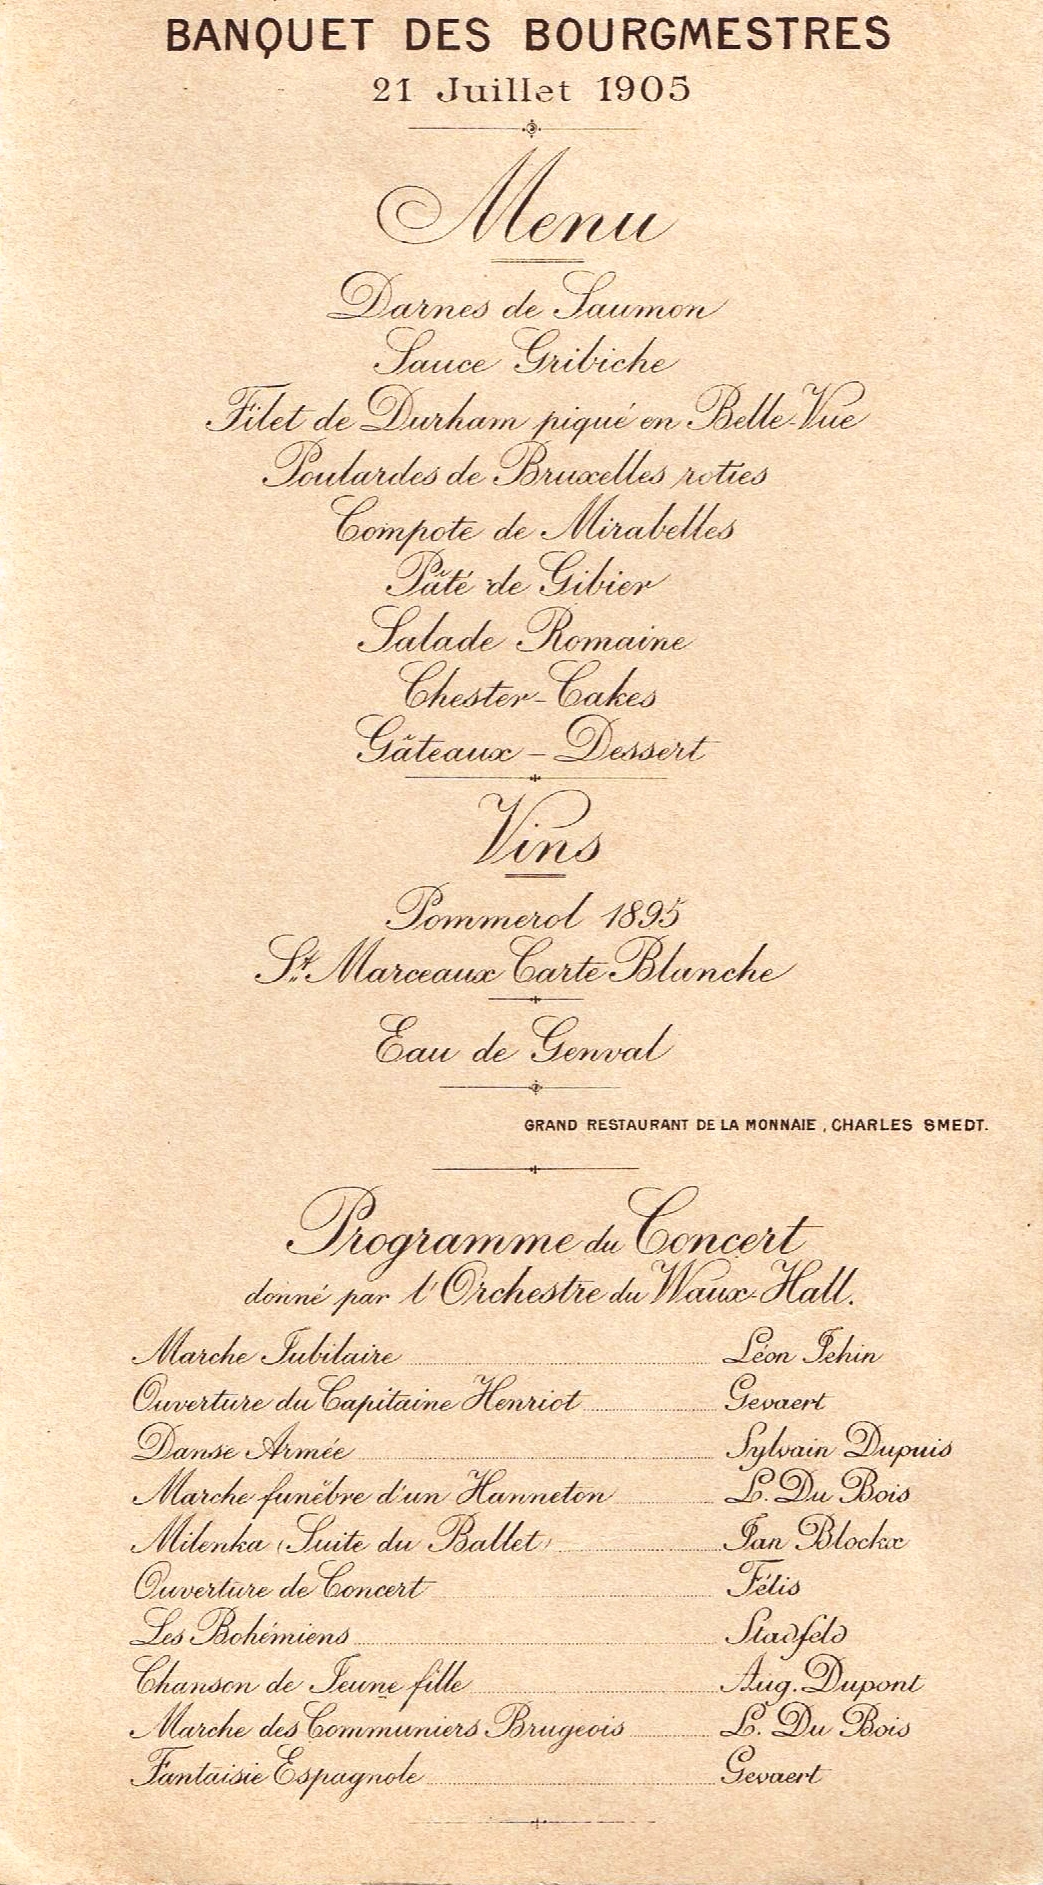 BANQUET DES BOURGMESTRES
21 Juillet 1905
Menu
Darnes de Saumon
Sauce Gribiche
Filet de Durham piqué en Belle-Vue
Poulardes de Bruxelles roties
Compote de Mirabelles
Pâté de Gibier
Salade Romaine
Chester-Cakes
Gâteaux – Dessert
Vins
Pommerol 1895
St. Marceaux Carte Blanche
Eau de Genval
GRAND RESTAURANT DE LA MONNAIE, CHARLES SMEDT.
Programme du Concert
donné par l'Orchestre du Waux-Hall.
Marche Jubilaire Léon Jehin
Ouverture du Capitaine Henriot Gevaert
Danse Armée Sylvain Dupuis
Marche funèbre d'un Hanneton L. Du Bois
Milenka (Suite du Ballet) Jan Blockx
Ouverture de Concert Fétis
Les Bohémiens Stadfeld
Chanson de Jeune fille Aug. Dupont
Marche des Communiers Brugeois L. Du Bois
Fantaisie Espagnole Gevaert